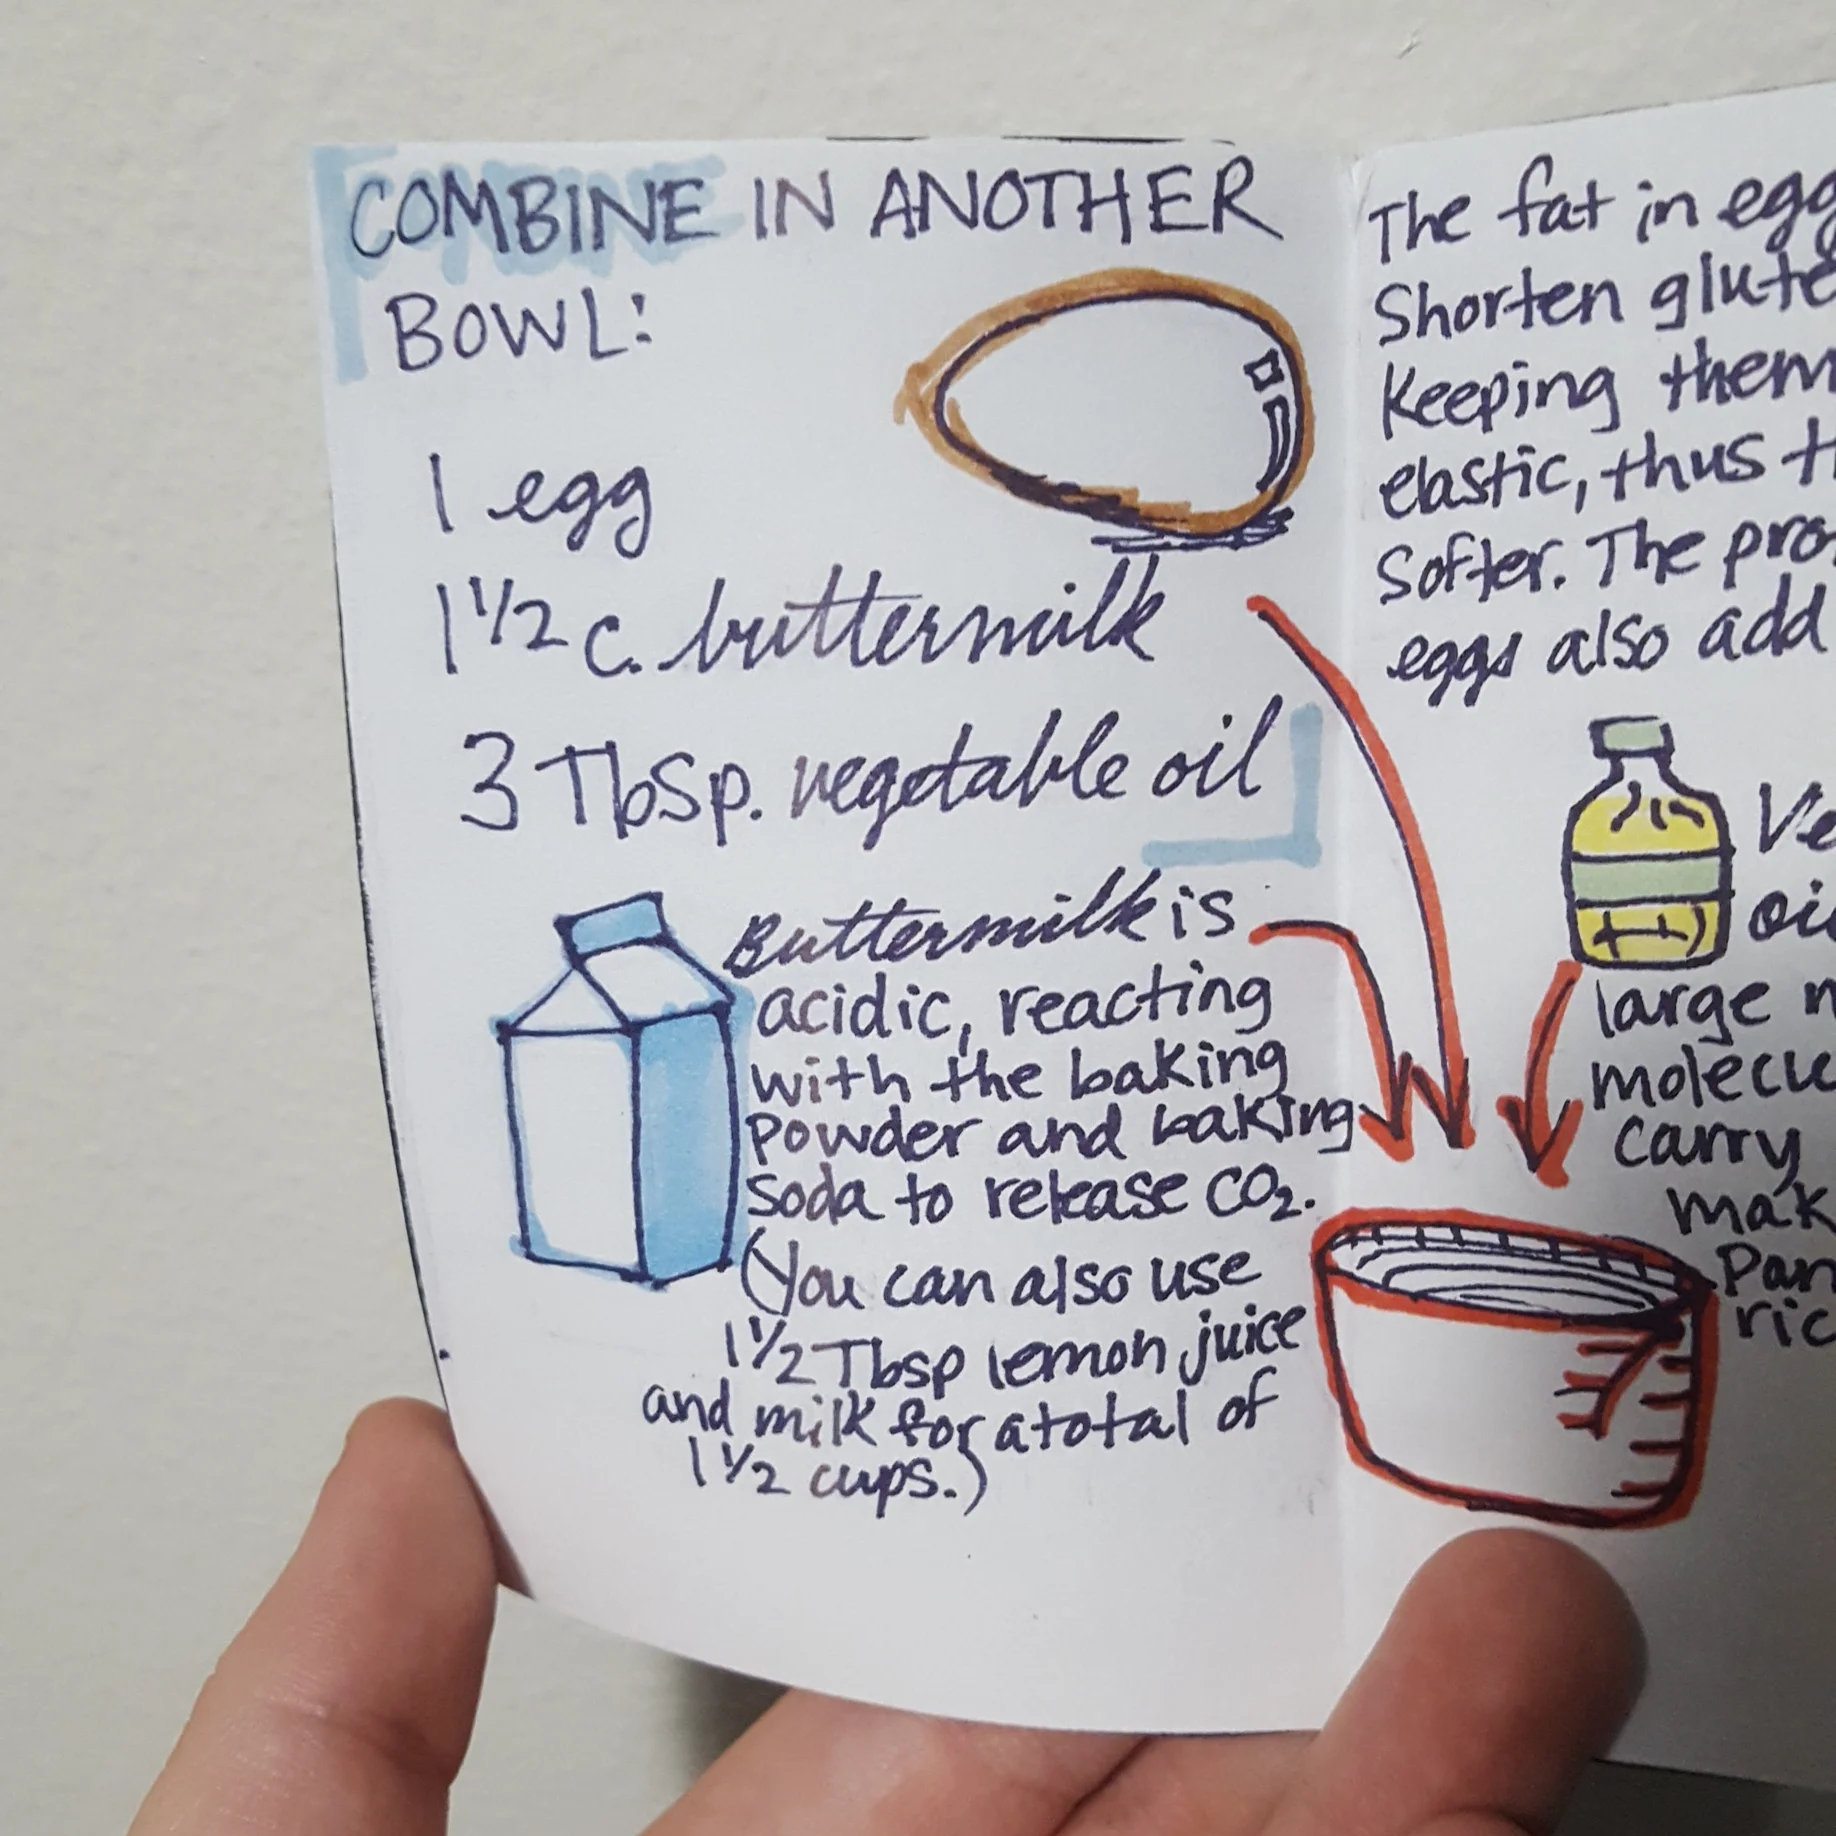 COMBINE IN ANOTHER
BOWL:
1 egg
1 1/2 c. buttermilk
3 Tbsp. vegetable oil
Buttermilk is
acidic, reacting
with the baking
powder and baking
soda to release CO2.
(You can also use
1 1/2 Tbsp lemon juice
and milk for a total of
1 1/2 cups.)
The fat in
Shorten
Keeping
elastic, thus
Softer. The
eggs also add
large
carry